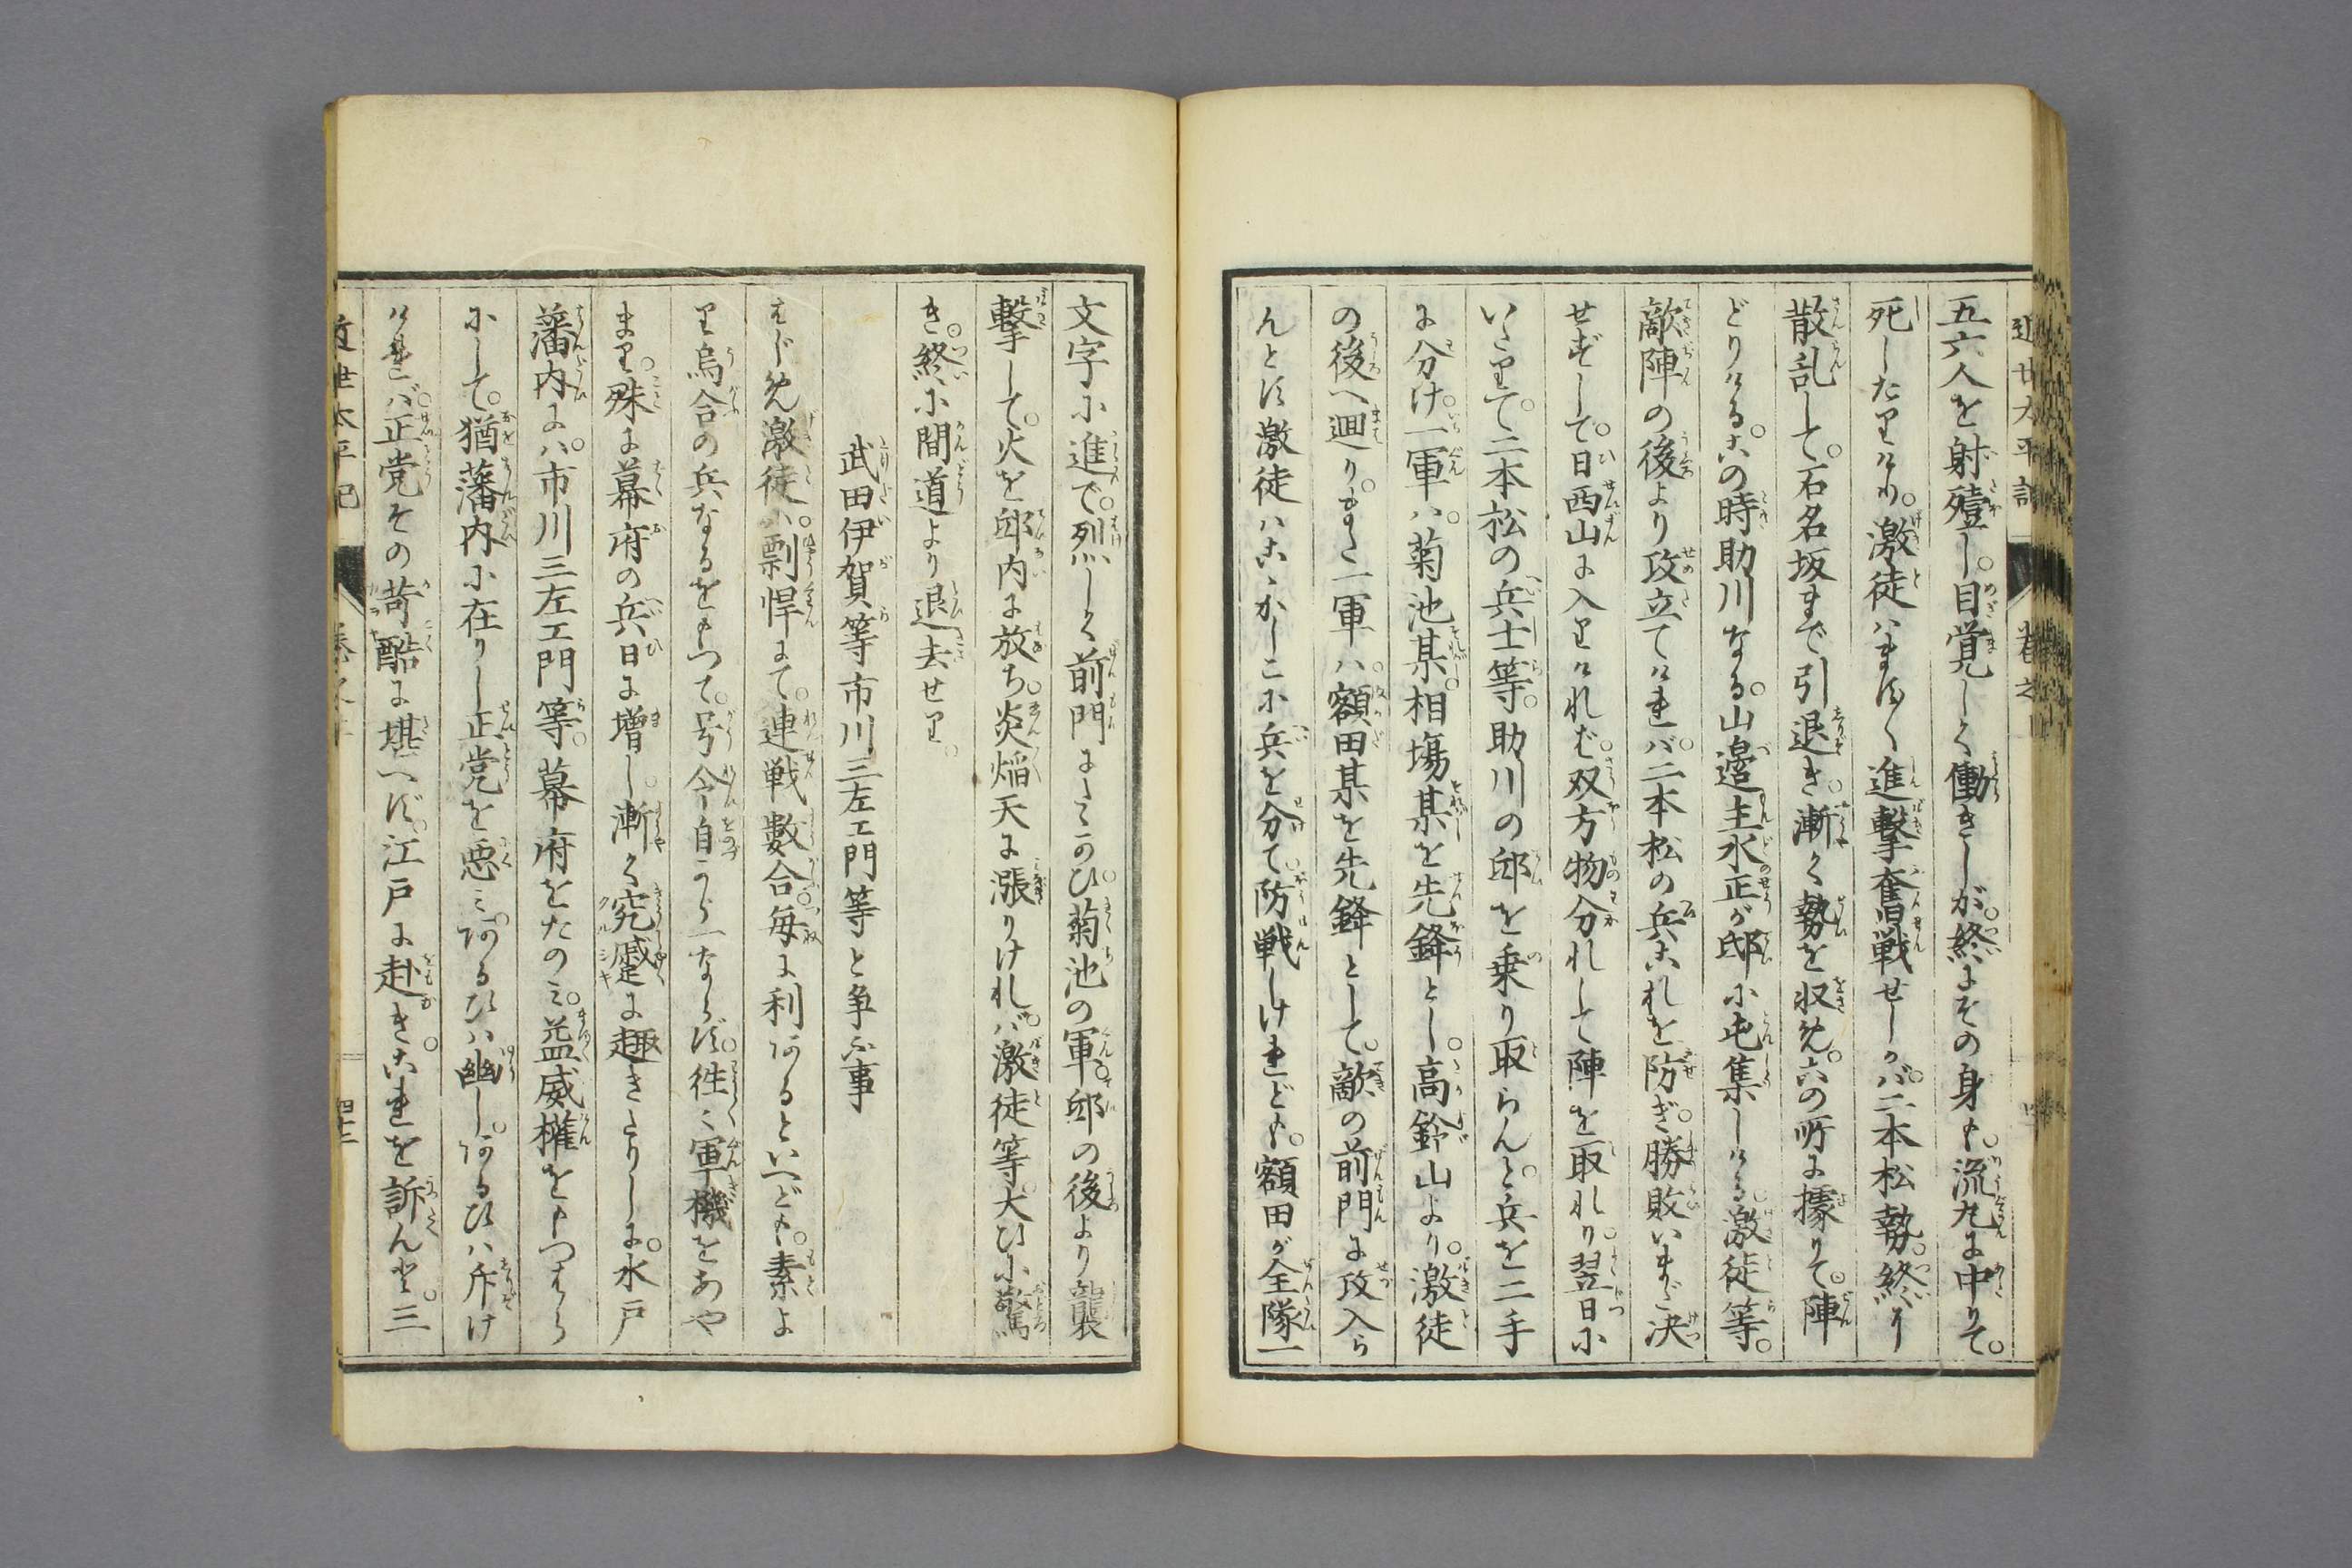 近世太平記
五六人を射殪し。目覚しく働きしが。終にその身も。流丸に中りて。
死したりけり。激徒ハますます進撃奮戦せしかバ。二本松勢。終に
散乱して。石名坂まで引退き。漸く勢を収め。六の所に據りて。陣
どりける。この時助川なる。山邉主水正が邸に屯集しける。激徒等。
敵陣の後より攻立てけれバ。二本松の兵これを防ぎ。勝敗いまだ決
せずして。日西山に入りけれバ。双方物分れして陣を取れり。翌日に
いたりて。二本松の兵士等。助川の邸を乗り取らんと。兵を二手
に分け。一軍ハ。菊池某。相塲某を先鋒とし。高鈴山より。激徒
の後へ廻り。また一軍ハ。額田某を先鋒として。敵の前門に攻入ら
んとす激徒ハこゝかしこに兵を分て。防戦しけれども。額田が全隊一
文字に進で。烈しく前門にたゝかひ。菊池の軍。邸の後より襲
撃して。火を邸内に放ち。炎焔天に漲りけれバ。激徒等大ひに驚
き。終に間道より退去せり。
武田伊賀等市川三左エ門等と争ふ事
はじめ激徒。剽悍にて。連戦數合。毎に利あるといへども。素よ
り烏合の兵なるをもつて。号令自から一ならず。往々軍機をあや
まり。殊に幕府の兵日に増し。漸く究蹙に趣きたりしに。水戸
藩内にハ。市川三左エ門等。幕府をたのみ。益威権をもつはら
にして。猶藩内に在りし正党を悪み。あるひハ幽し。あるひハ斥け
けれバ。正党その苛酷に堪へず。江戸に赴き。これを訴んと。三
近世太平記
四十二